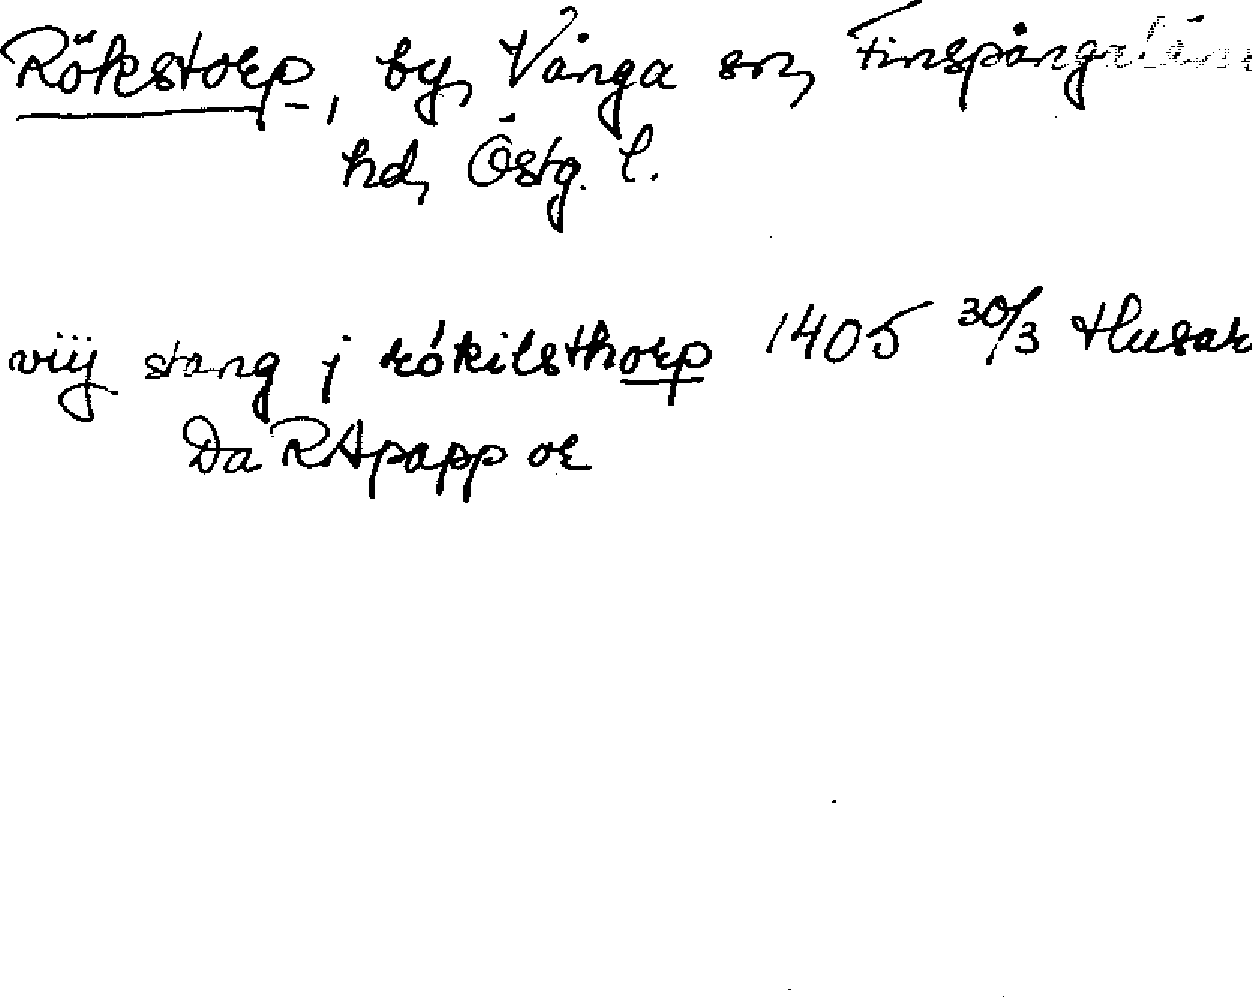 Rökstorp, by, Vånga sn, Finspångalän
hd, Östg. l.
viij stang j rókilsthorp 1405 30/3 Husar
Da RApapp or